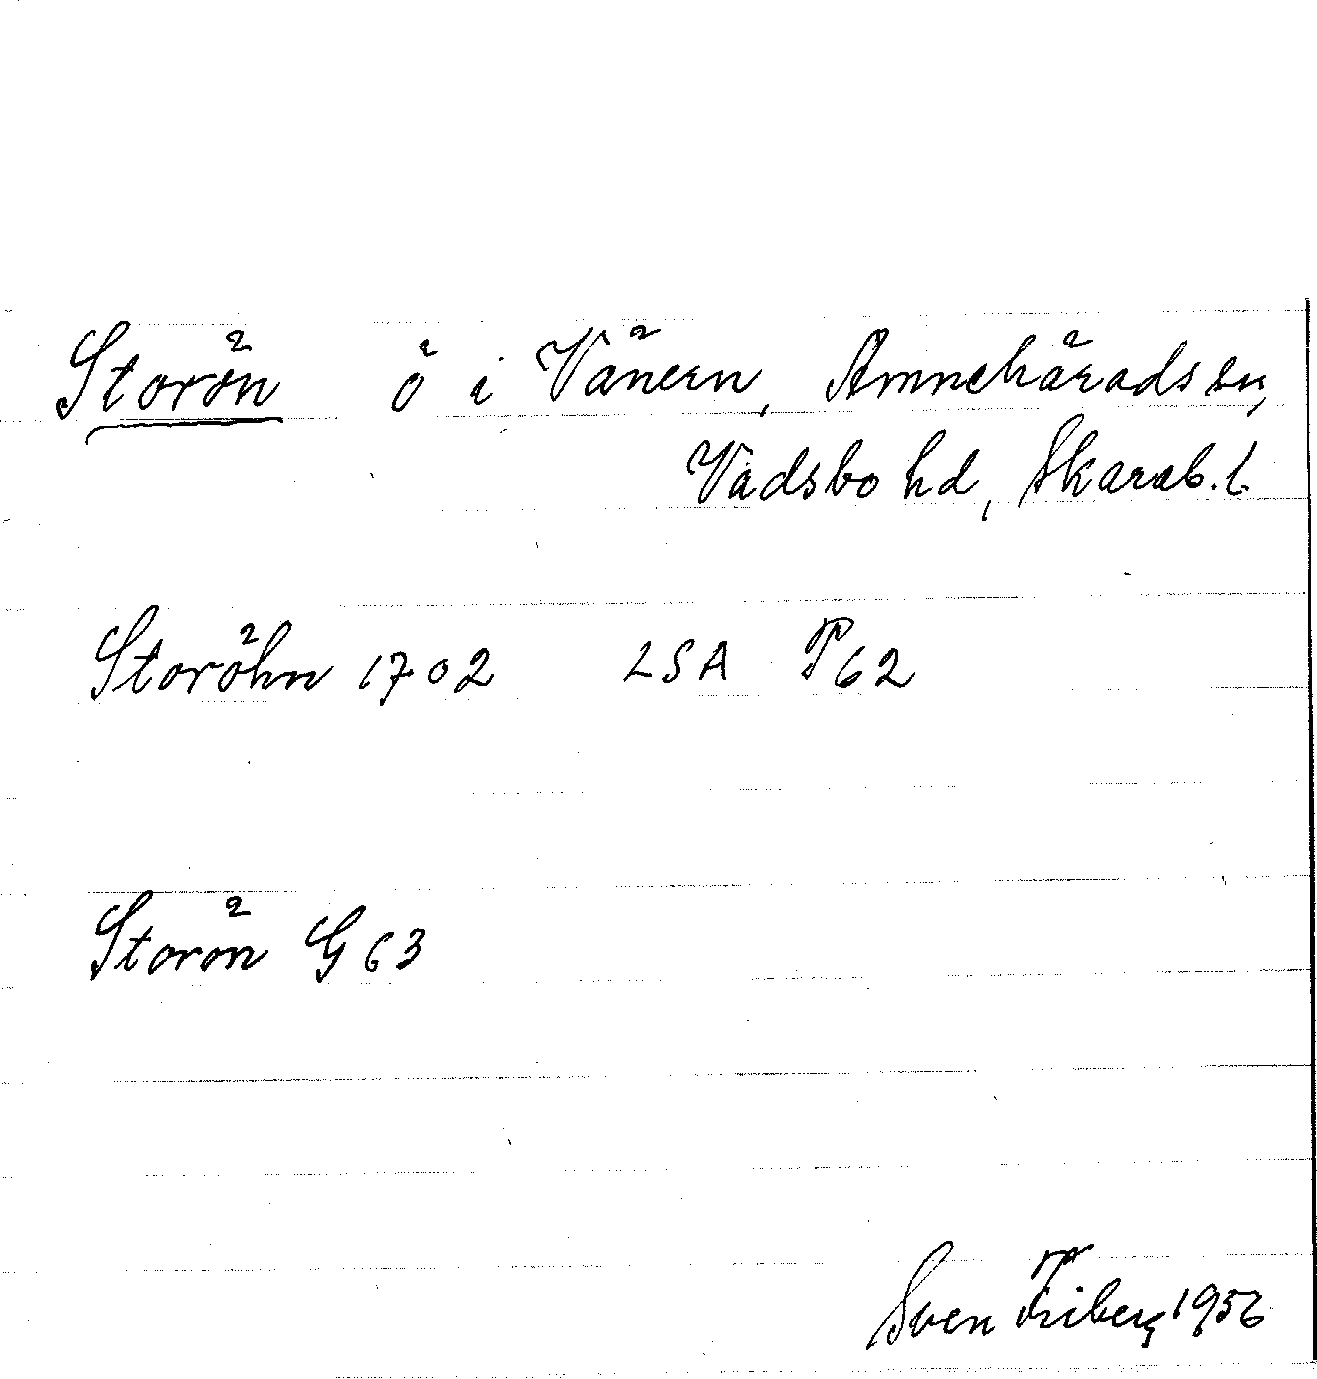 Storön ö i Vänern, Amnehärads sn,
Vadsbo hd, Skarab. l.
Storöhn 1702 LSA P62
Storön G63
Sven Friberg 1956